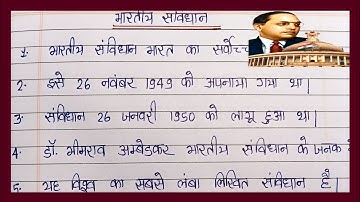 भारतीय संविधान
1. भारतीय संविधान भारत का सर्वोच्च
2. इसे 26 नवंबर 1949 को अपनाया गया था।
3. संविधान 26 जनवरी 1950 को लागू हुआ था।
4. डॉ. भीमराव अम्बेडकर भारतीय संविधान के जनक
5. यह विश्व का सबसे लंबा लिखित संविधान है।